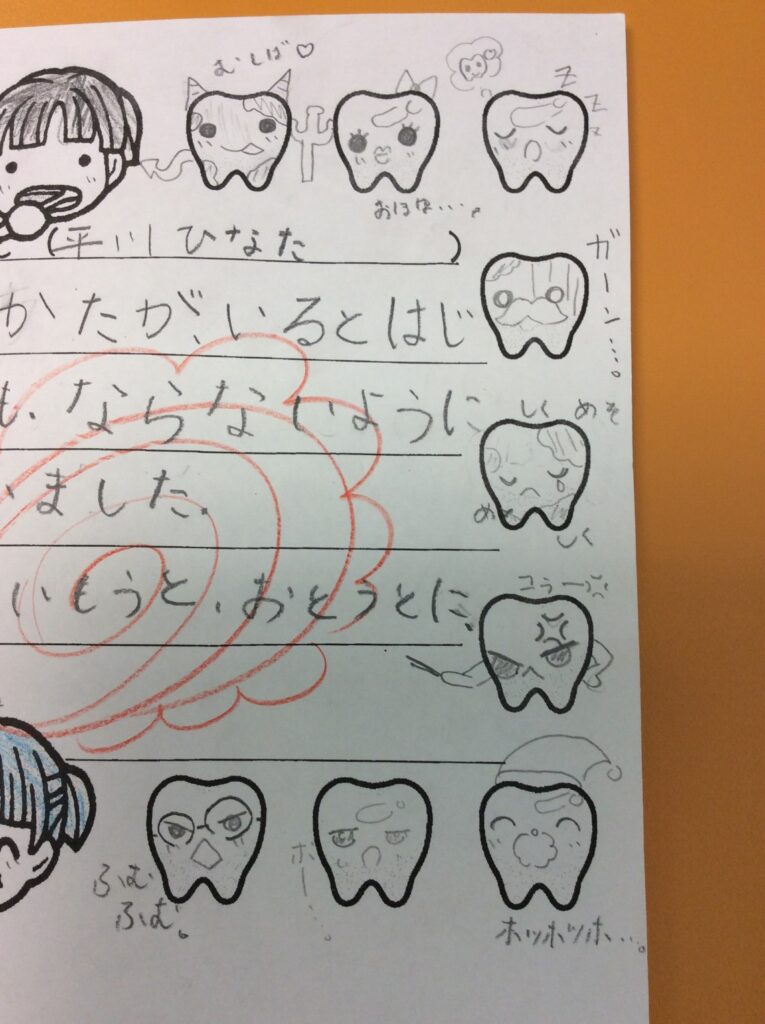 むしば♡
ZZZ
おほほ…。
(平川ひなた )
ガーン…。
かたが、いるとはじ
しく めそ
も、ならないように
いました.
めそ
しく
いもうと、おとうとに
ふむ
ふむ。
ホー…。
ホッホッホ…。